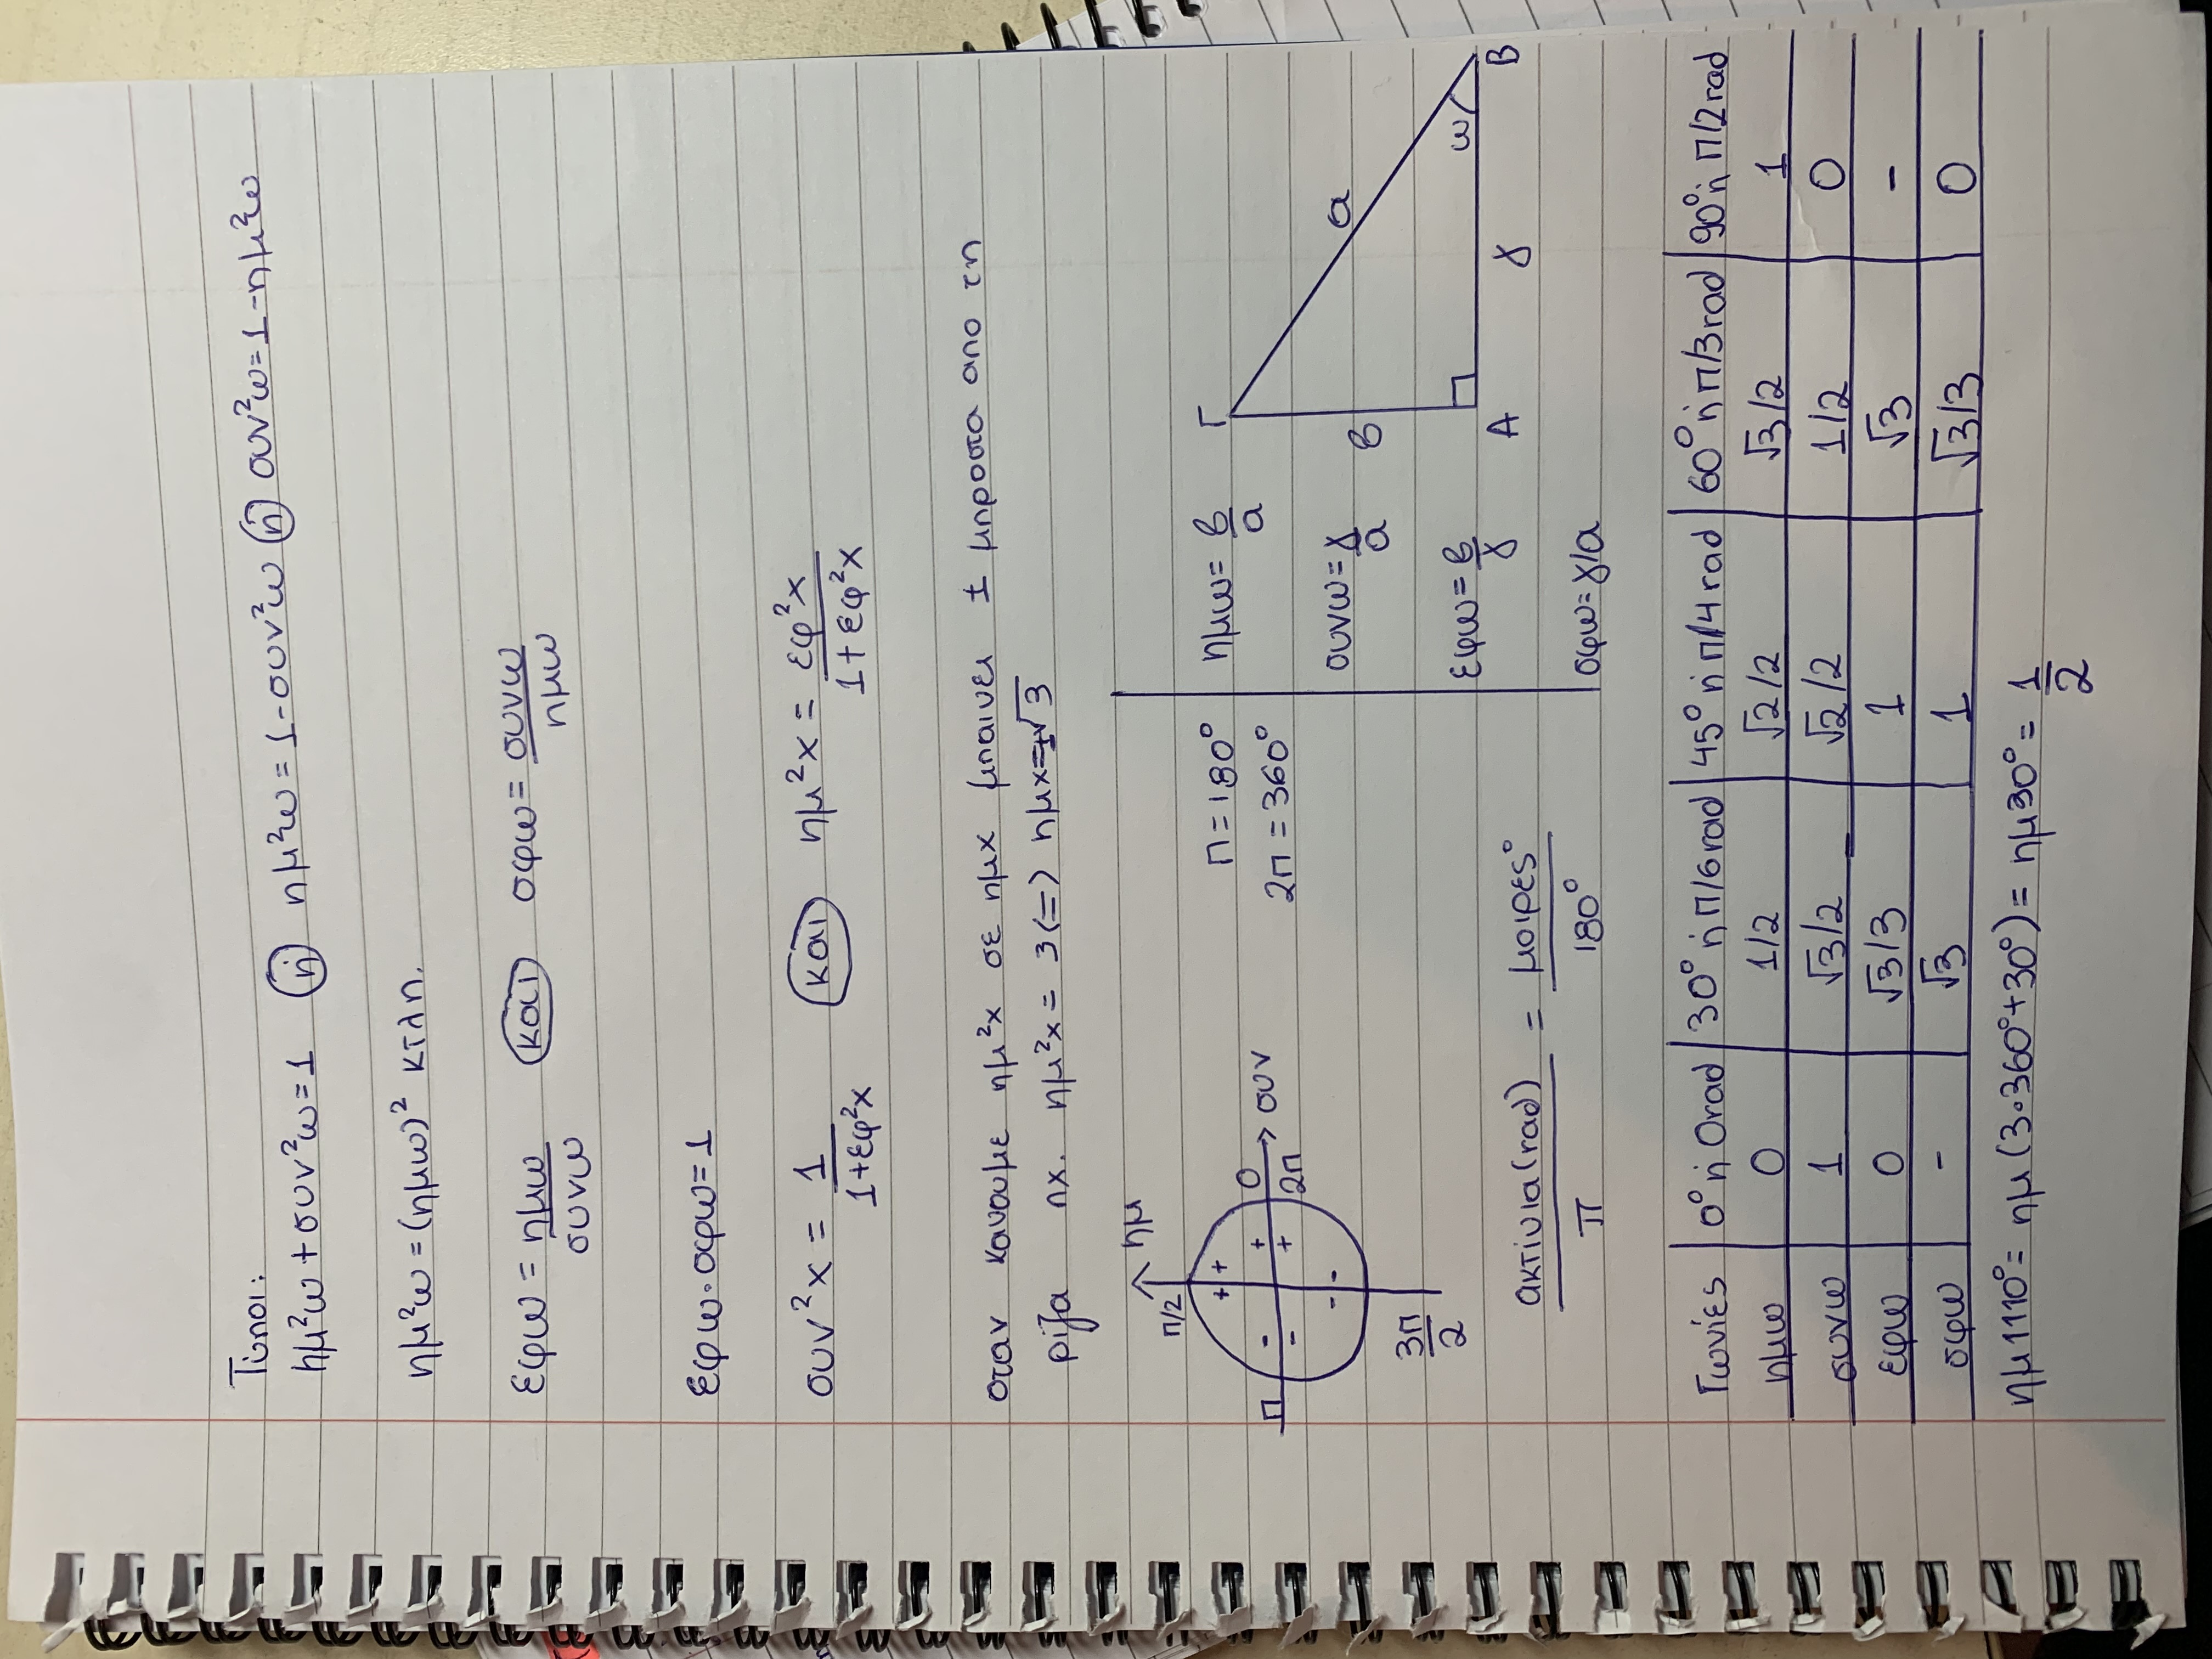 Τύποι:
ημ²ω + συν²ω = 1 ή ημ²ω = 1 - συν²ω ή συν²ω = 1 - ημ²ω
ημ²ω = (ημω)² κτλπ.
εφω = ημω/συνω και σφω = συνω/ημω
εφω · σφω = 1
συν²x = 1/(1+εφ²x) και ημ²x = εφ²x/(1+εφ²x)
οταν κανουμε ημ²x σε ημx μπαινει ± μπροστα απο τη
ριζα πχ. ημ²x = 3 (=) ημx = ±√3
ημ
π/2
+ +
- + 0
π συν
- + 2π
- -
3π/2
π = 180°
2π = 360°
ακτίνια (rad)/π = μοιρες°/180°
ημω = β/α
συνω = γ/α
εφω = β/γ
σφω = γ/α
Γ
α
β
ω
Α γ Β
Γωνίες 0° ή 0rad 30° ή π/6 rad 45° ή π/4 rad 60° ή π/3 rad 90° ή π/2 rad
ημω 0 1/2 √2/2 √3/2 1
συνω 1 √3/2 √2/2 1/2 0
εφω 0 √3/3 1 √3 -
σφω - √3 1 √3/3 0
ημ 1110° = ημ (3·360° + 30°) = ημ 30° = 1/2